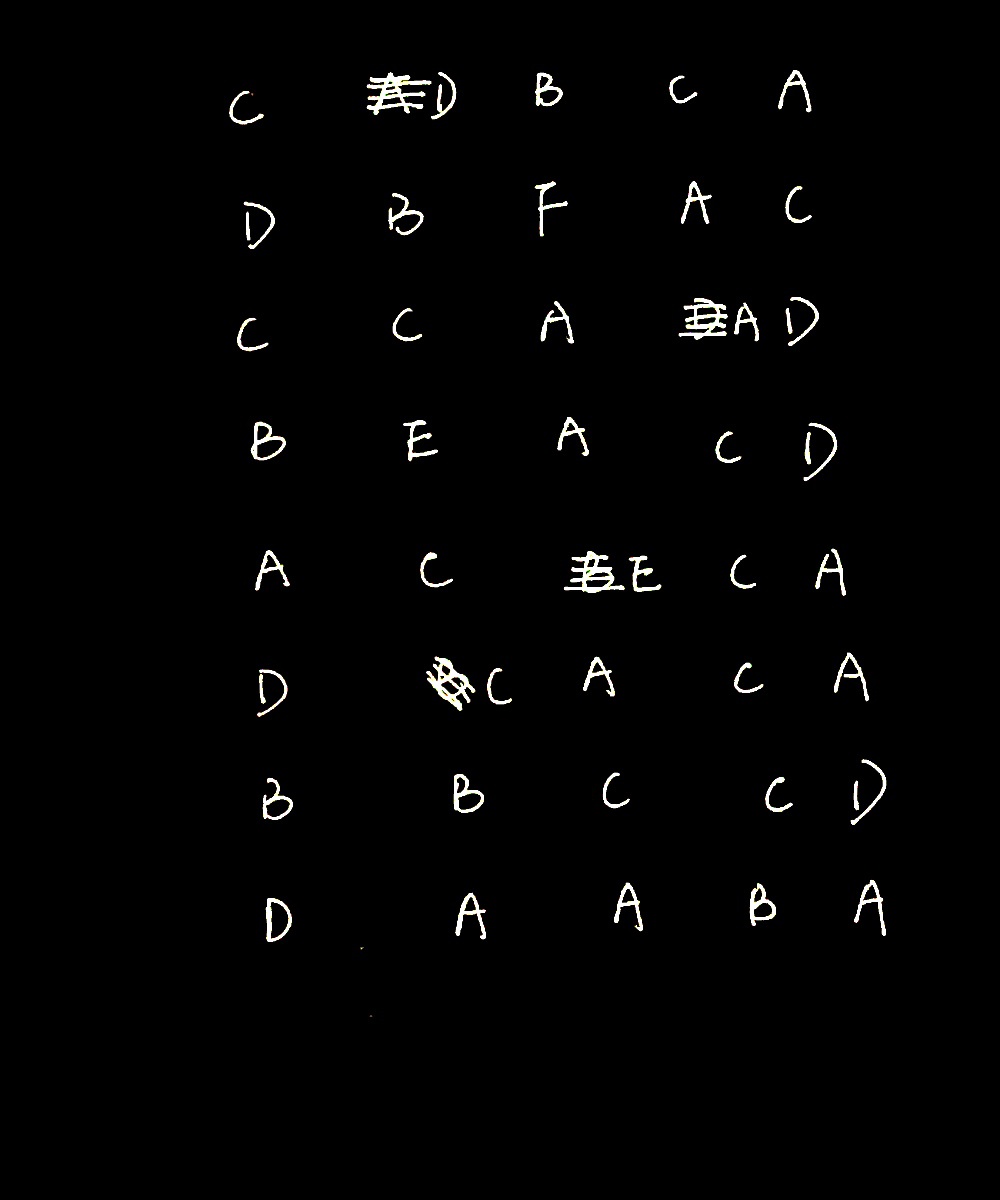 C D B C A
D B F A C
C C A A D
B E A C D
A C E C A
D C A C A
B B C C D
D A A B A